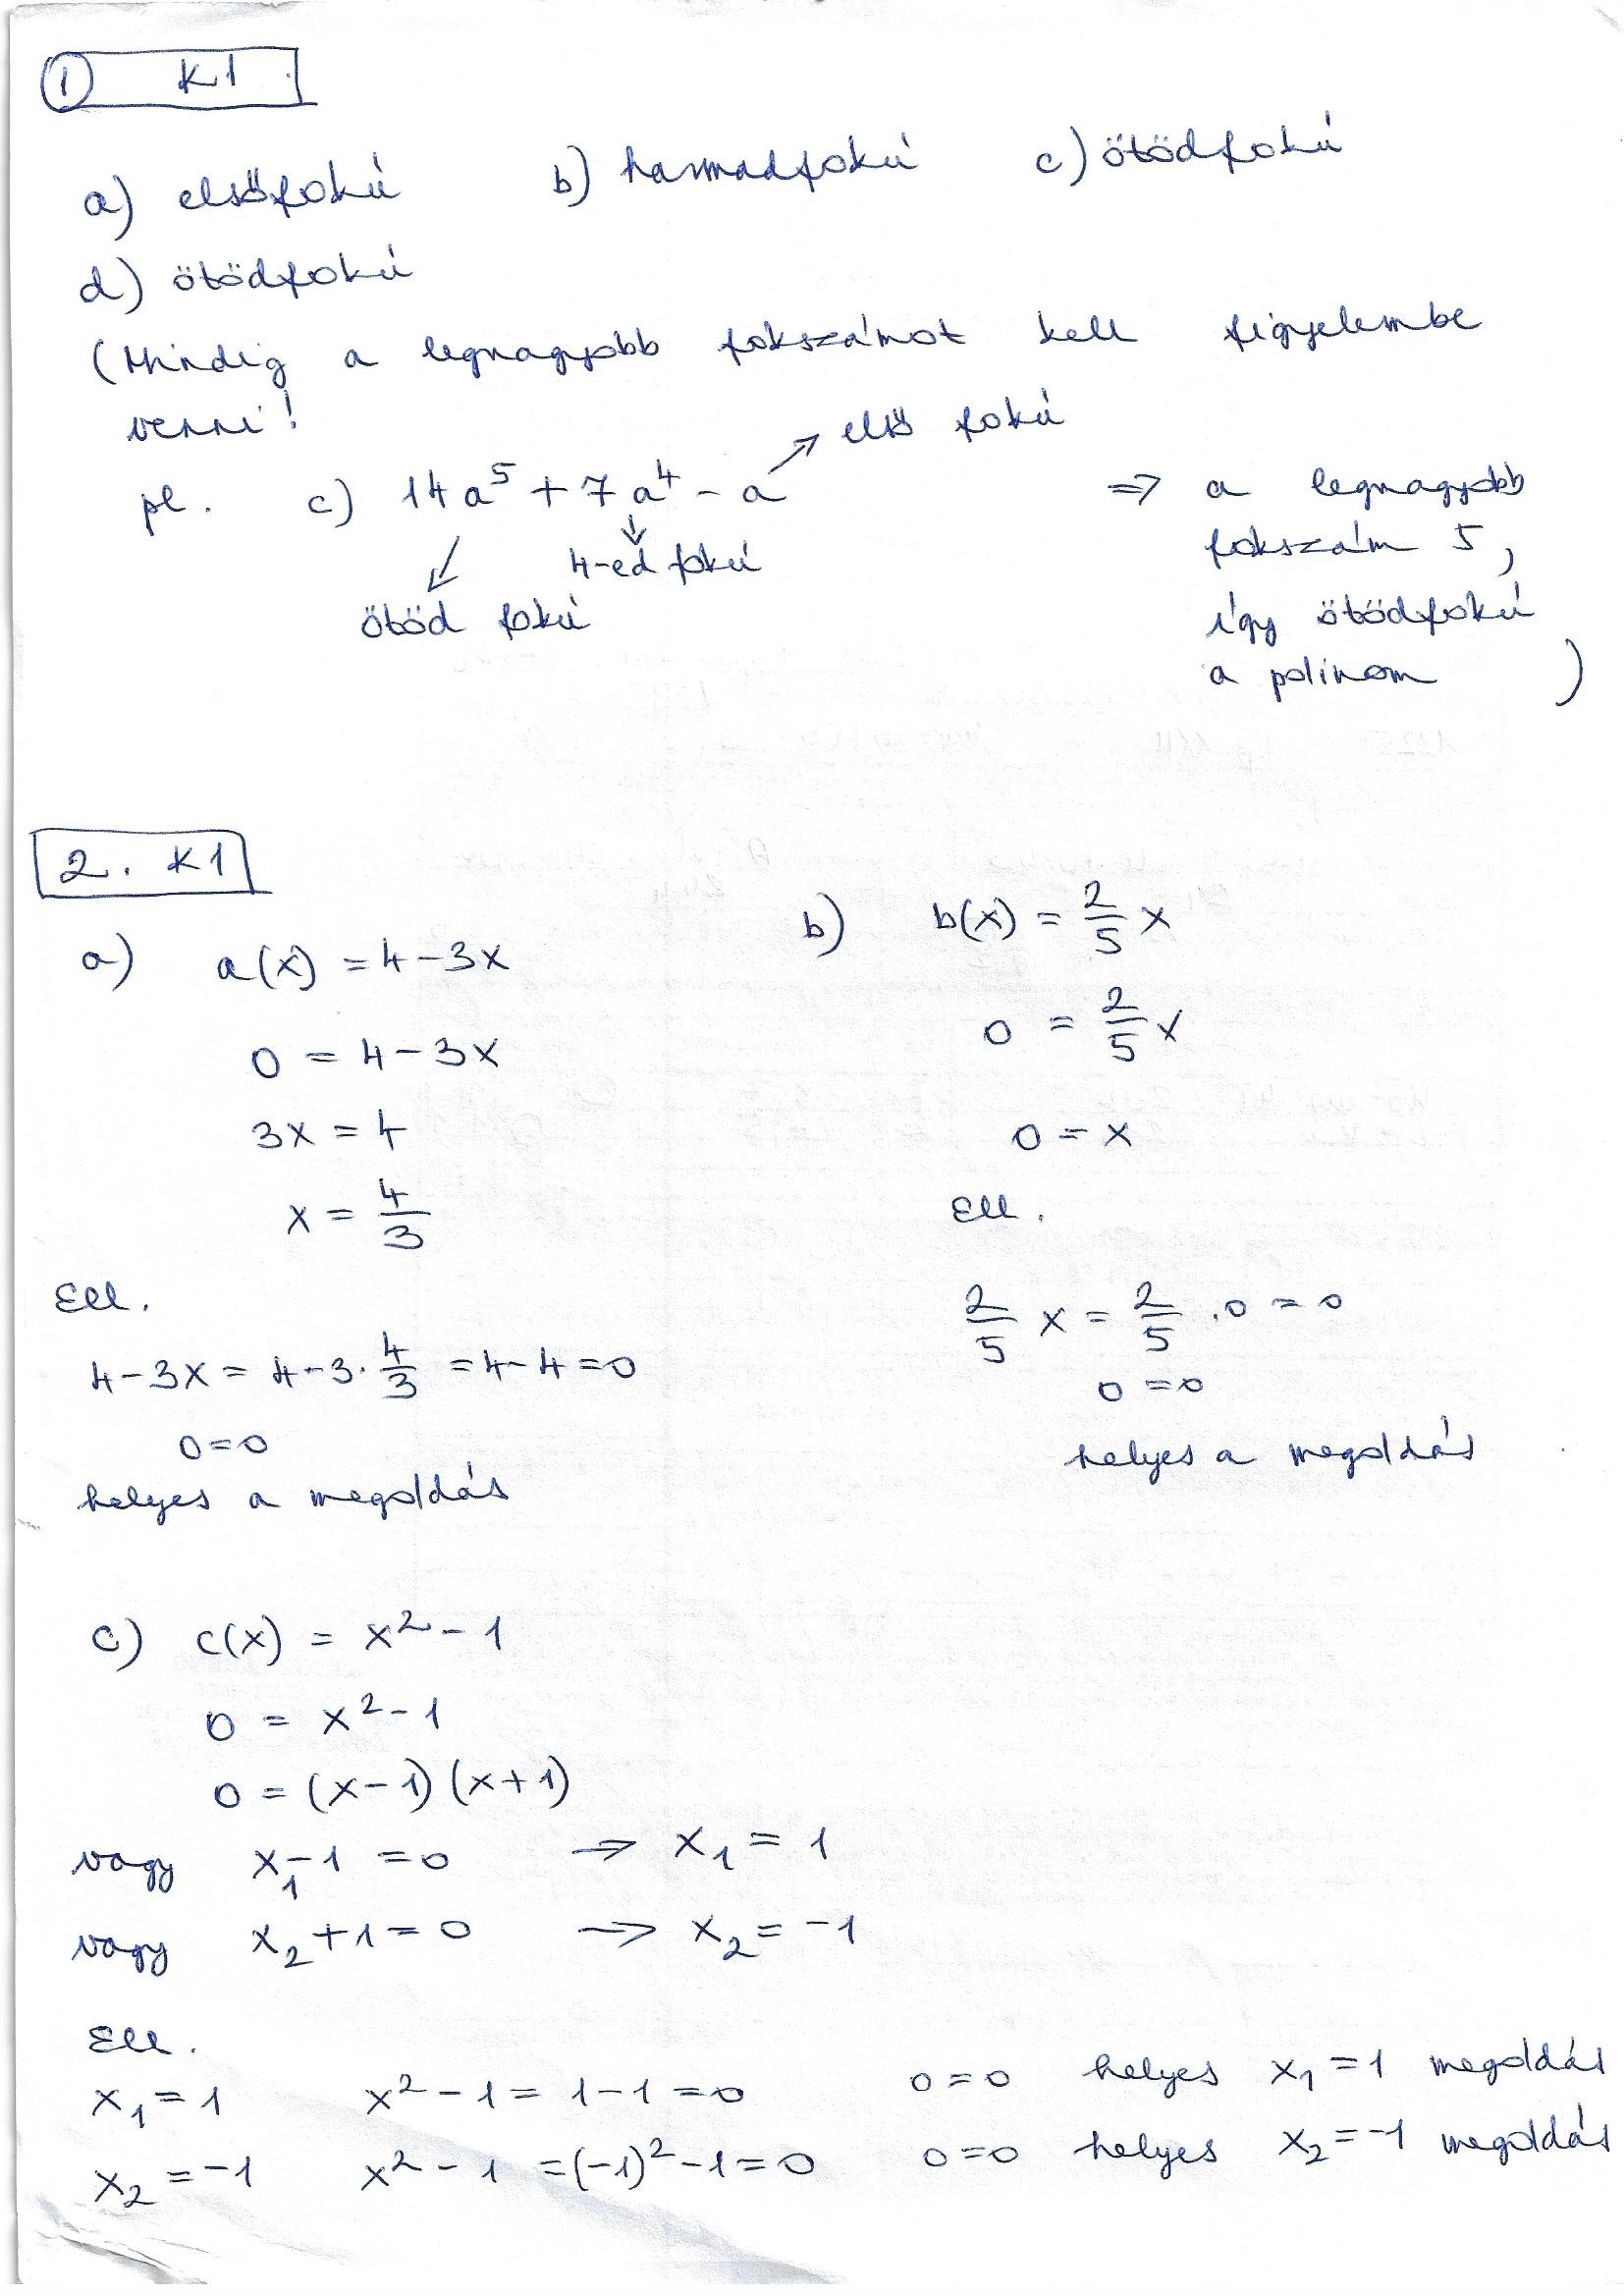 ① K1
a) elsőfokú b) harmadfokú c) ötödfokú
d) ötödfokú
(Mindig a legnagyobb fokszámot kell figyelembe
venni!
első fokú
pl. c) 14a⁵ + 7a⁴ - a ⇒ a legnagyobb
4-ed fokú fokszám 5,
ötöd fokú így ötödfokú
a polinom )
2. K1
a) a(x) = 4-3x
0 = 4-3x
3x = 4
x = 4/3
Ell.
4-3x = 4-3·4/3 = 4-4 = 0
0=0
helyes a megoldás
b) b(x) = 2/5 x
0 = 2/5 x
0 = x
Ell.
2/5 x = 2/5 ·0 = 0
0 = 0
helyes a megoldás
c) c(x) = x² - 1
0 = x² - 1
0 = (x-1)(x+1)
vagy x₁-1 = 0 → x₁ = 1
vagy x₂+1 = 0 → x₂ = -1
Ell.
x₁ = 1 x² - 1 = 1-1 = 0 0=0 helyes x₁ = 1 megoldás
x₂ = -1 x² - 1 = (-1)² - 1 = 0 0=0 helyes x₂ = -1 megoldás